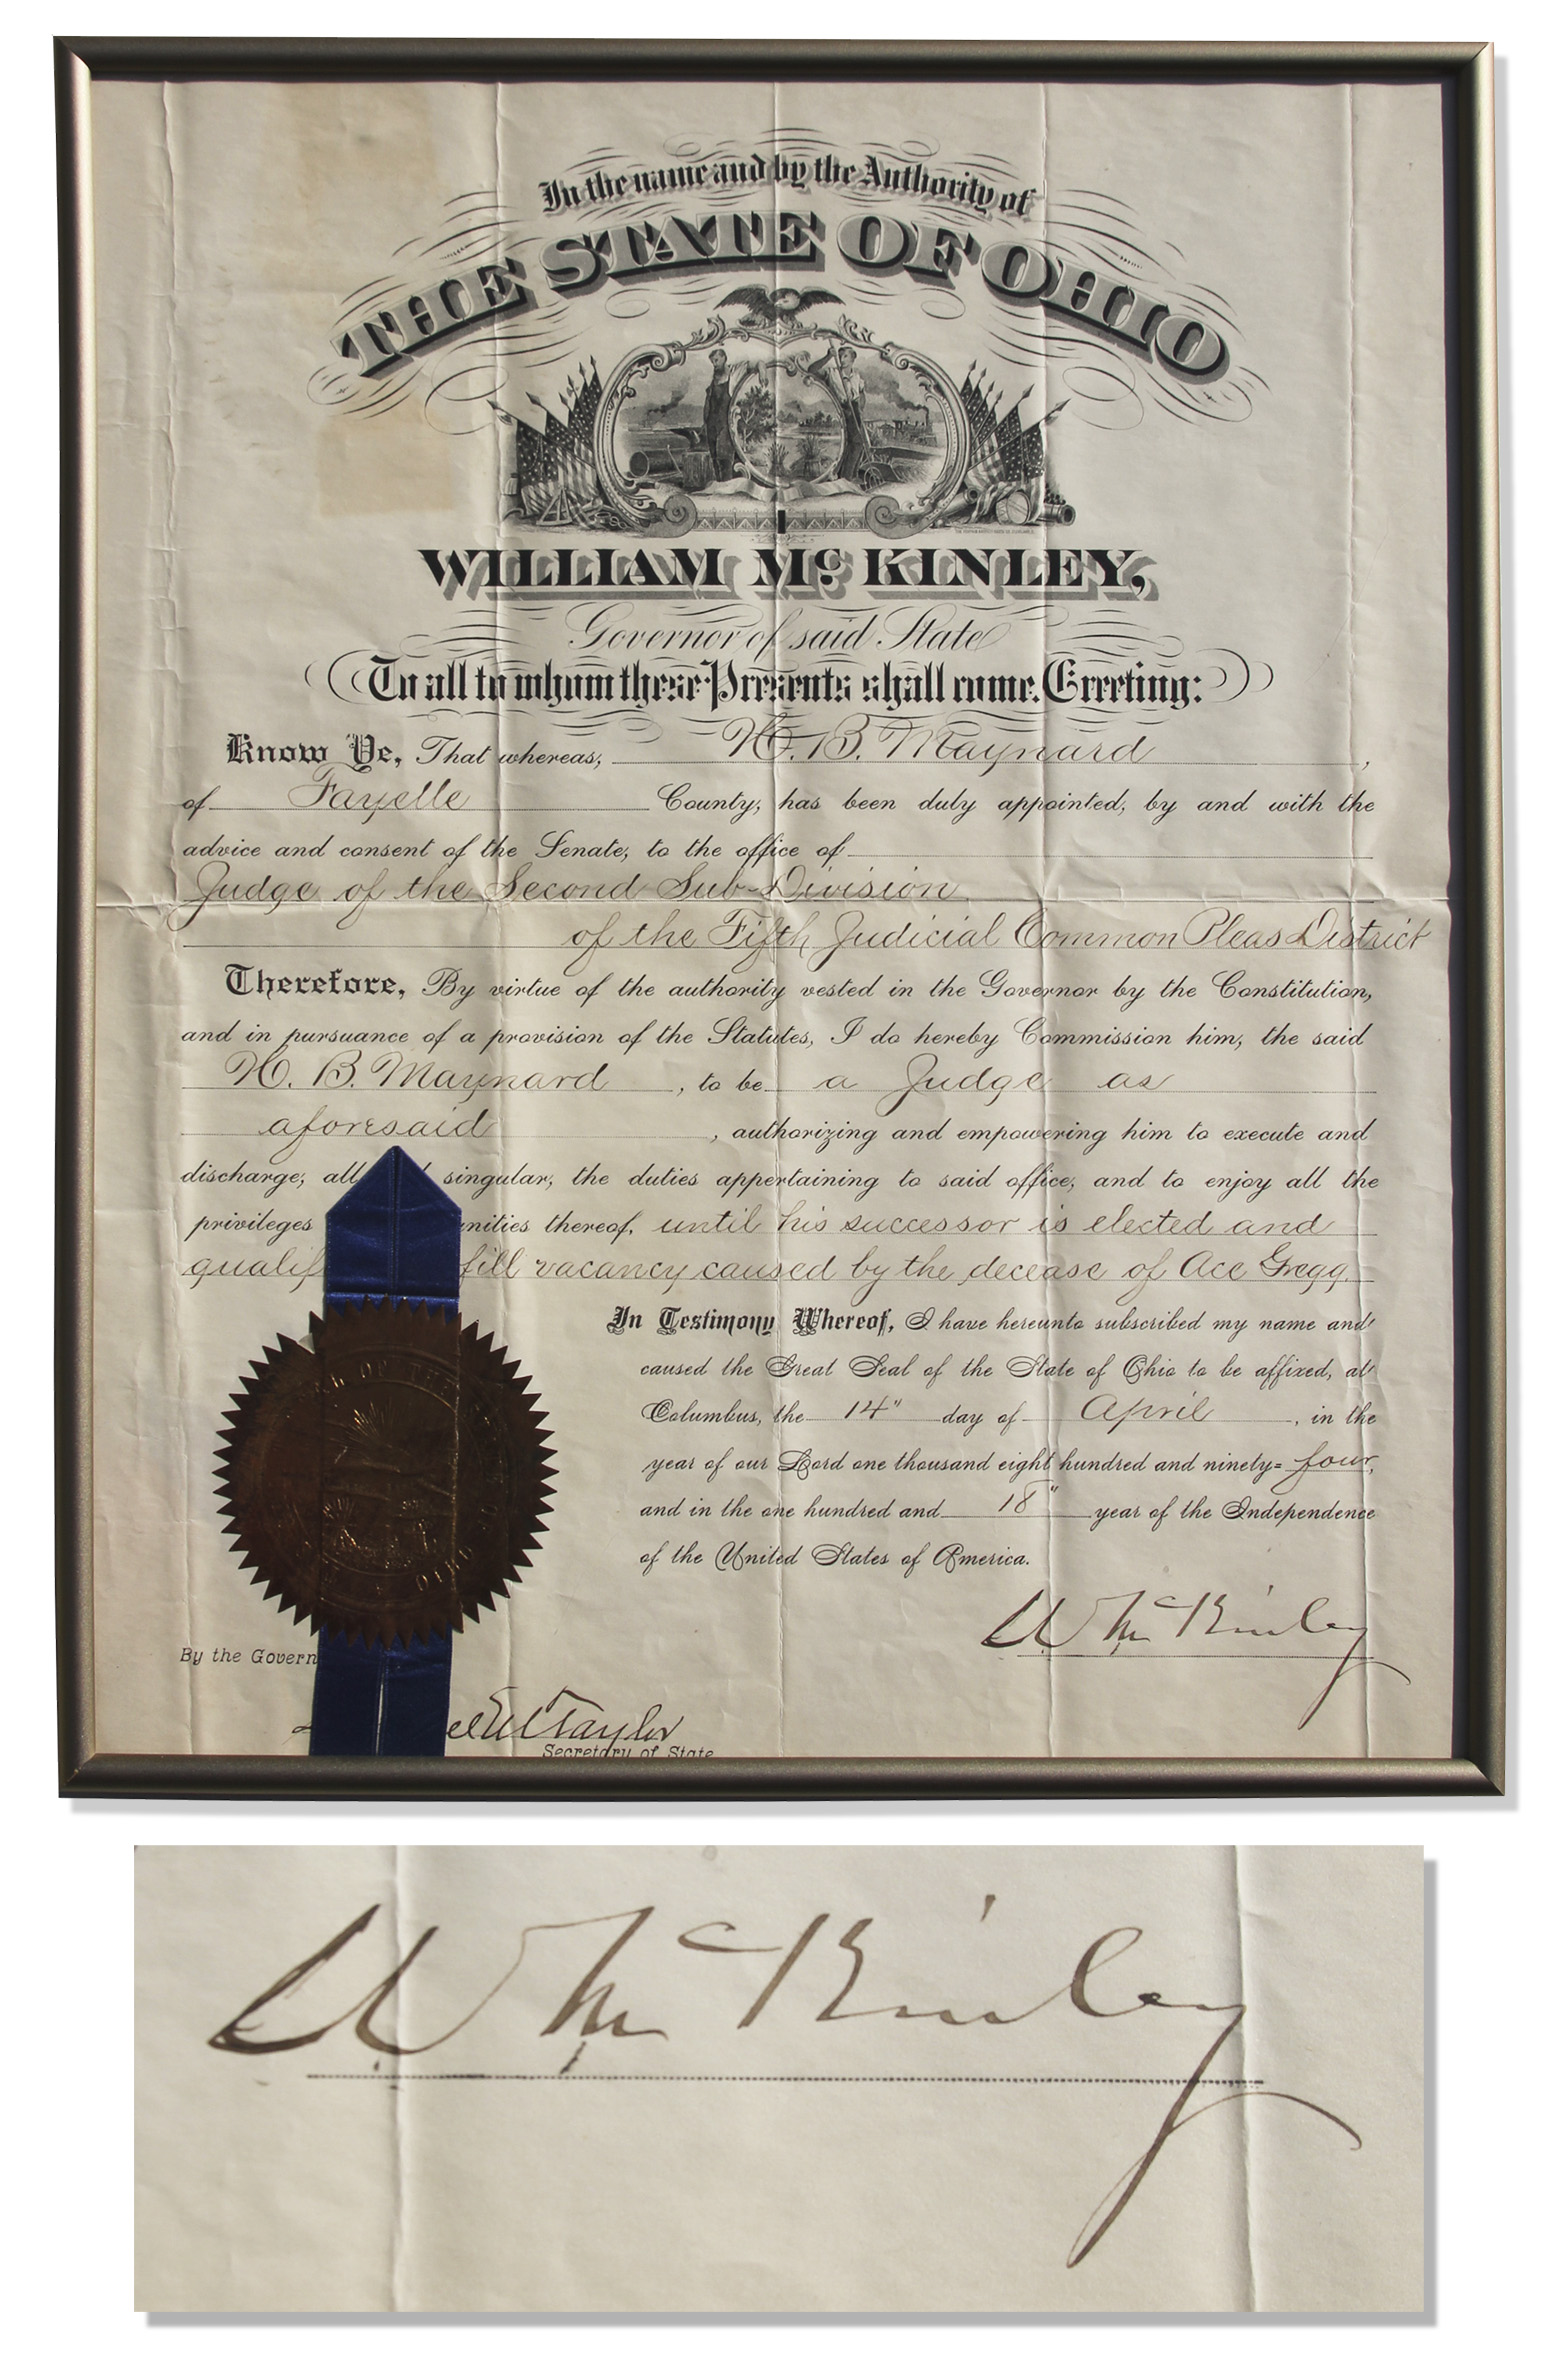 In the name and by the Authority of
THE STATE OF OHIO
WILLIAM McKINLEY,
Governor of said State
To all to whom these Presents shall come, Greeting:
Know Ye, That whereas, H. B. Maynard,
of Fayette County, has been duly appointed, by and with the
advice and consent of the Senate, to the office of
Judge of the Second Sub-Division
of the Fifth Judicial Common Pleas District
Therefore, By virtue of the authority vested in the Governor by the Constitution,
and in pursuance of a provision of the Statutes, I do hereby Commission him, the said
H. B. Maynard, to be a Judge as
aforesaid, authorizing and empowering him to execute and
discharge, all singular, the duties appertaining to said office, and to enjoy all the
privileges nities thereof, until his successor is elected and
qualif fill vacancy caused by the decease of Ace Gregg.
In Testimony Whereof, I have hereunto subscribed my name and
caused the Great Seal of the State of Ohio to be affixed, at
Columbus, the 14" day of April, in the
year of our Lord one thousand eight hundred and ninety=four,
and in the one hundred and 18" year of the Independence
of the United States of America.
W McKinley
By the Govern
el M Taylor
Secretary of State
OF THE
OHIO
W McKinley